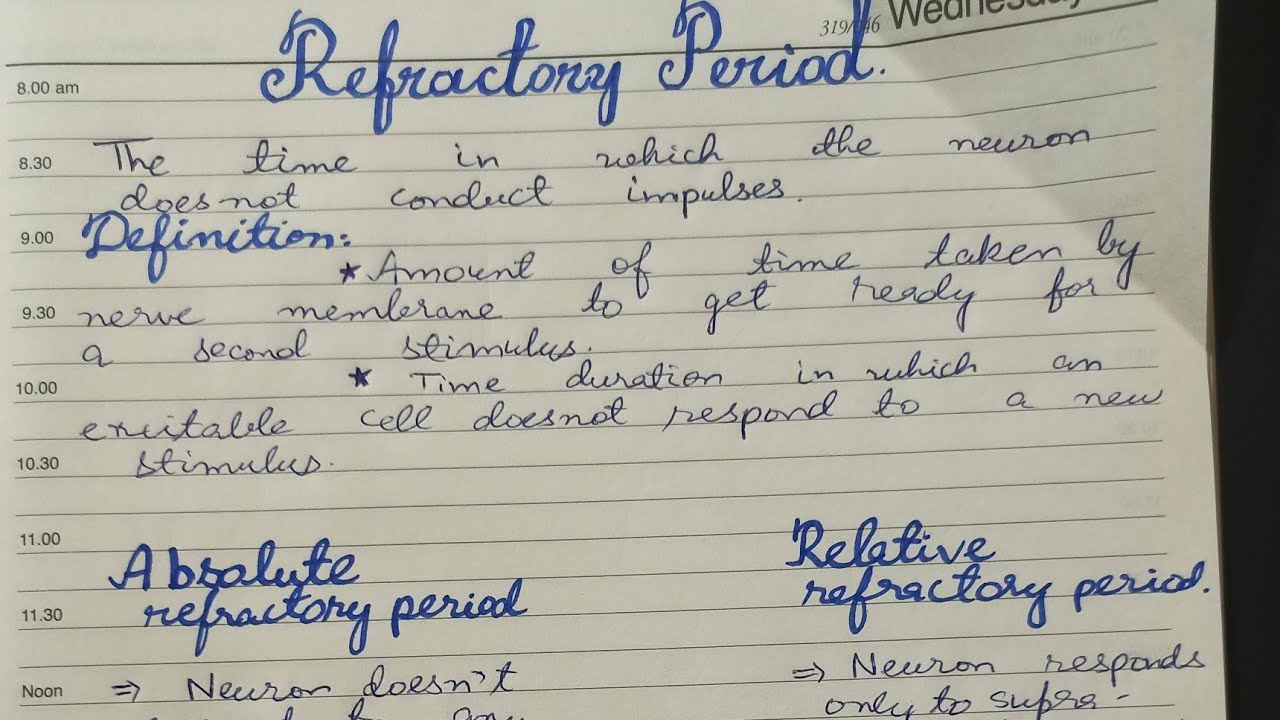 319/046 Wednesday
Refractory Period.
8.00 am
8.30 The time in which the neuron
does not conduct impulses.
9.00 Definition:
* Amount of time taken by
9.30 nerve membrane to get ready for
a second stimulus.
10.00 * Time duration in which an
excitable cell doesnot respond to a new
10.30 stimulus.
11.00
Absolute Relative
11.30 refractory period refractory period.
Noon ⇒ Neuron doesn't ⇒ Neuron responds
any only to supra-